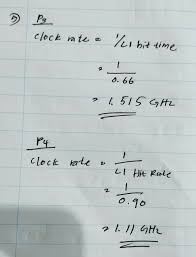 P3
clock rate = 1/L1 hit time
= 1
0.66
= 1.515 GHz
P4
clock rate = 1
L1 Hit Rate
= 1
0.90
= 1.11 GHz